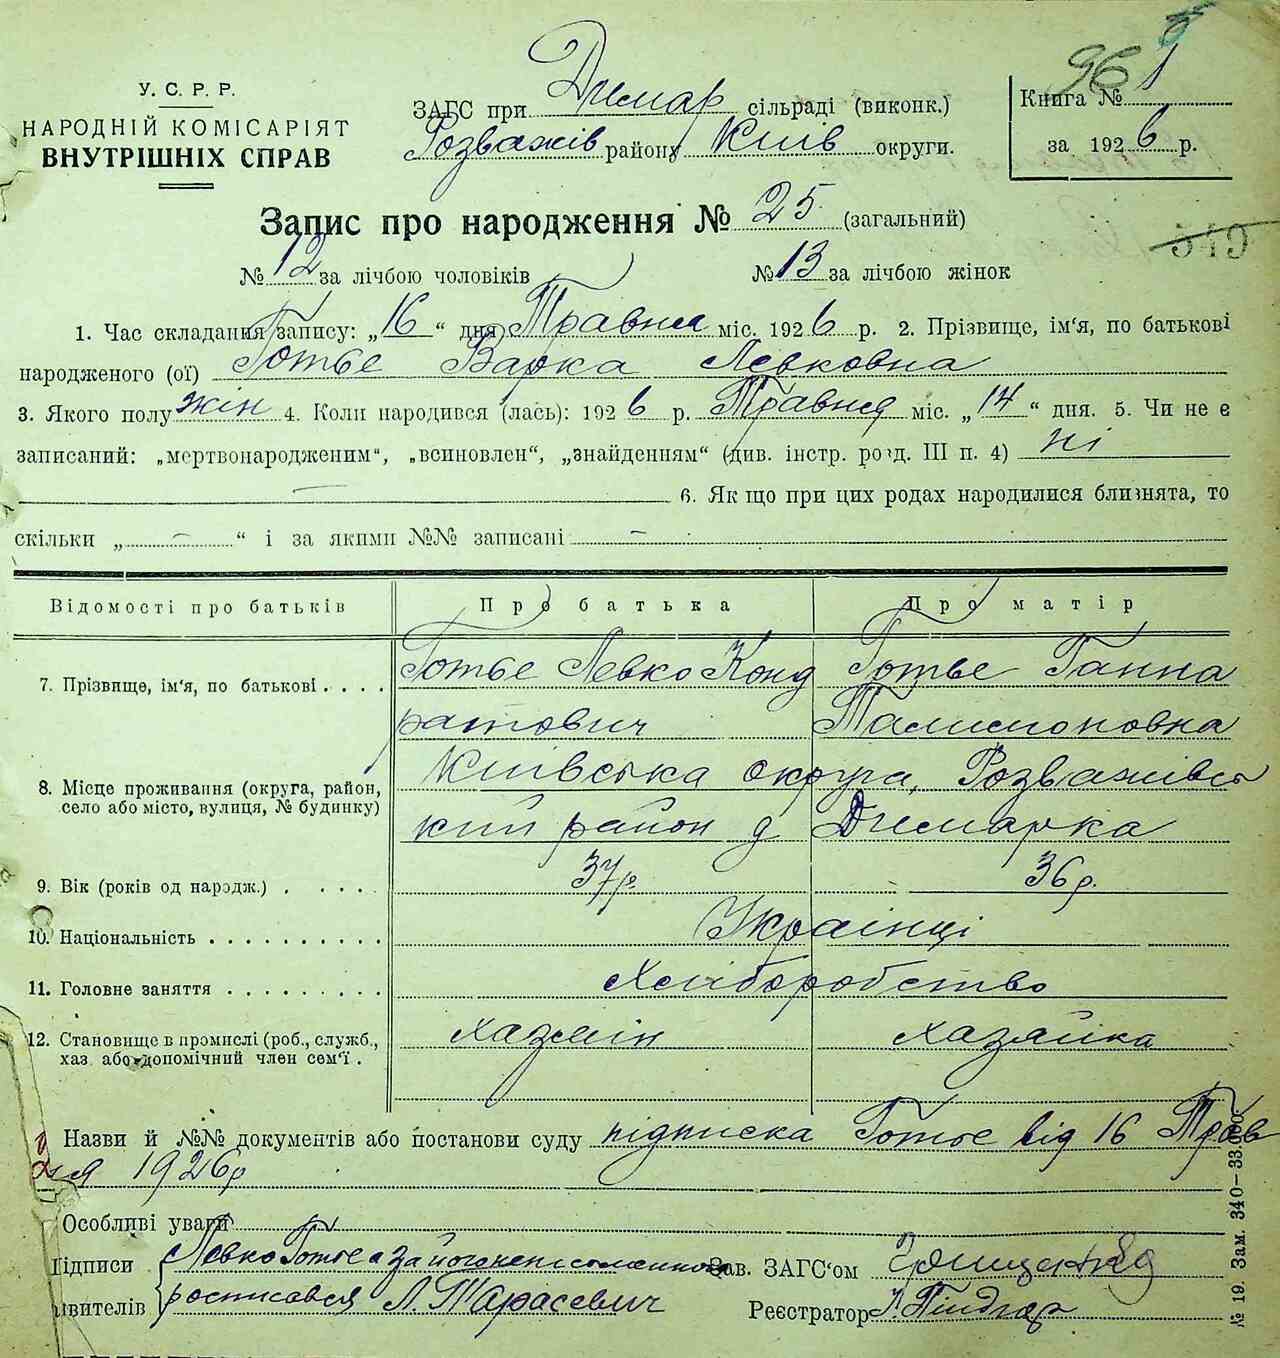 96 1
У. С. Р. Р.
НАРОДНІЙ КОМІСАРІЯТ
ВНУТРІШНІХ СПРАВ
ЗАГС при Димар сільраді (виконк.)
Розважів району Київ округи.
Книга №
за 1926 р.
Запис про народження № 25 (загальний)
549
№ 12 за лічбою чоловіків № 13 за лічбою жінок
1. Час складання запису: „16“ дня Травня міс. 1926 р. 2. Прізвище, ім‘я, по батькові
народженого (ої) Готье Варка Левковна
3. Якого полу жін 4. Коли народився (лась): 1926 р. Травня міс. „14“ дня. 5. Чи не є
записаний: „мертвонародженим“, „всиновлен“, „знайденням“ (див. інстр. розд. III п. 4) ні
6. Як що при цих родах народилися близнята, то
скільки „ – “ і за якими №№ записані –
Відомості про батьків Про батька Про матір
7. Прізвище, ім‘я, по батькові . . . . Готье Левко Конд Готье Ганна
ратович
8. Місце проживання (округа, район, Київська округа, Розважівсь
село або місто, вулиця, № будинку) кий район д Димарка
9. Вік (років од народж.) . . . . . 37р. 36р.
10. Національність . . . . . . . . . . Українці
11. Головне заняття . . . . . . . . . Хліборобство
12. Становище в промислі (роб., служб., хазяїн хазяйка
хаз. або допомічний член сем‘ї .
Назви й №№ документів або постанови суду підписка Готье від 16 Трав
ня 1926р
Особливі уваги
Підписи Левко Готье а за його неписьменного Зав. ЗАГС‘ом
явителів росписався Л. Тарасевич Реєстратор
№ 19. Зам. 340–33.000.